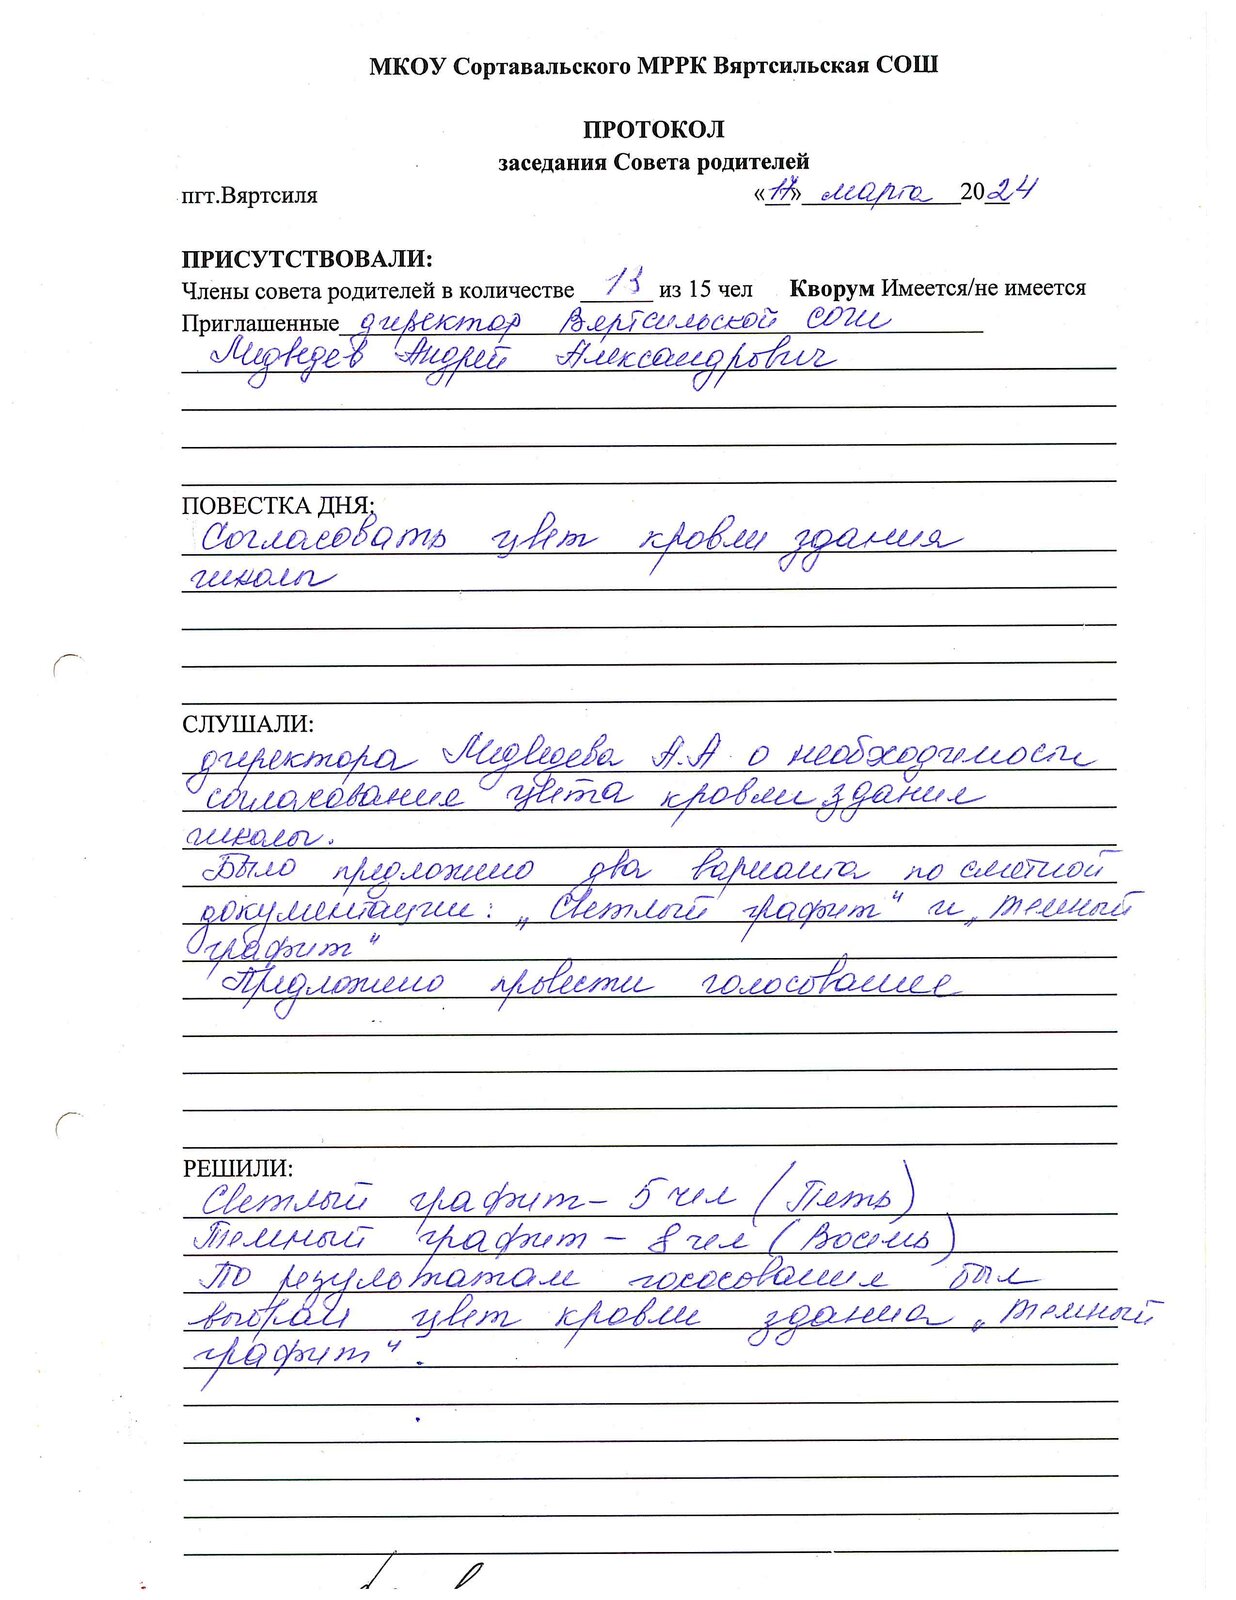 МКОУ Сортавальского МРРК Вяртсильская СОШ
ПРОТОКОЛ
заседания Совета родителей
пгт.Вяртсиля «17» марта 2024
ПРИСУТСТВОВАЛИ:
Члены совета родителей в количестве 13 из 15 чел Кворум Имеется/не имеется
Приглашенные директор Вяртсильской СОШ
Медведев Андрей Александрович
ПОВЕСТКА ДНЯ:
Согласовать цвет кровли здания
школы
СЛУШАЛИ:
директора Медведева А.А о необходимости
согласования цвета кровли здания
школы.
Было предложено два варианта по сметной
документации: „Светлый графит“ и „темный
графит“
Предложено провести голосование
РЕШИЛИ:
Светлый графит - 5 чел (Петь)
Темный графит - 8 чел (Восемь)
По результатам гососования был
выбран цвет кровли здания „темный
графит“.